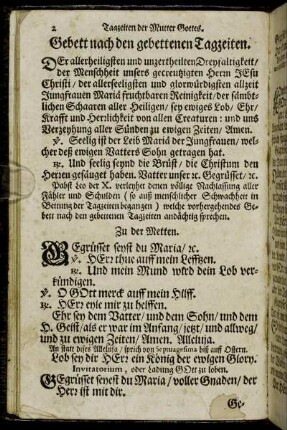 2 Tagzeiten der Mutter Gottes.
Gebett nach den gebettenen Tagzeiten.
DEr allerheiligsten und unzertheilten Dreyfaltigkeit/
der Menschheit unsers gecreutzigten Herrn JEsu
Christi/ der allerseeligsten und glorwürdigsten allzeit
Jungfrauen Mariä fruchtbaren Reinigkeit/ der sämbt-
lichen Schaaren aller Heiligen/ sey ewiges Lob/ Ehr/
Krafft und Herrlichkeit von allen Creaturen: und uns
Verzeyhung aller Sünden zu ewigen Zeiten/ Amen.
℣. Seelig ist der Leib Mariä der Jungfrauen/ wel-
cher deß ewigen Vatters Sohn getragen hat.
℟. Und seelig seynd die Brüst/ die Christum den
Herren gesäuget haben. Vatter unser ꝛc. Gegrüsset/ ꝛc.
Pabst Leo der X. verleyhet denen völlige Nachlassung aller
Fähler und Schulden (so auß menschlicher Schwachheit in
Bettung der Tagzeiten begangen) welche vorhergehendes Ge-
bett nach den gebettenen Tagzeiten andächtig sprechen.
Zu der Metten.
GEgrüsset seyst du Maria/ ꝛc.
℣. HErr thue auff mein Lefftzen.
℟. Und mein Mund wird dein Lob ver-
kündigen.
℣. O GOtt merck auff mein Hilff.
℟. HErr eyle mir zu helffen.
Ehr sey dem Vatter/ und dem Sohn/ und dem
H. Geist/ als er war im Anfang/ jetzt/ und allweg/
und zu ewigen Zeiten/ Amen. Alleluja.
An statt dises Alleluja/ sprich von Septuagesima biß auff Ostern.
Lob sey dir HErr ein König der ewigen Glory.
Invitatorium, oder Ladung GOtt zu loben.
GEgrüsset seyst du Maria/ voller Gnaden/ der
Herr ist mit dir.
Ge-